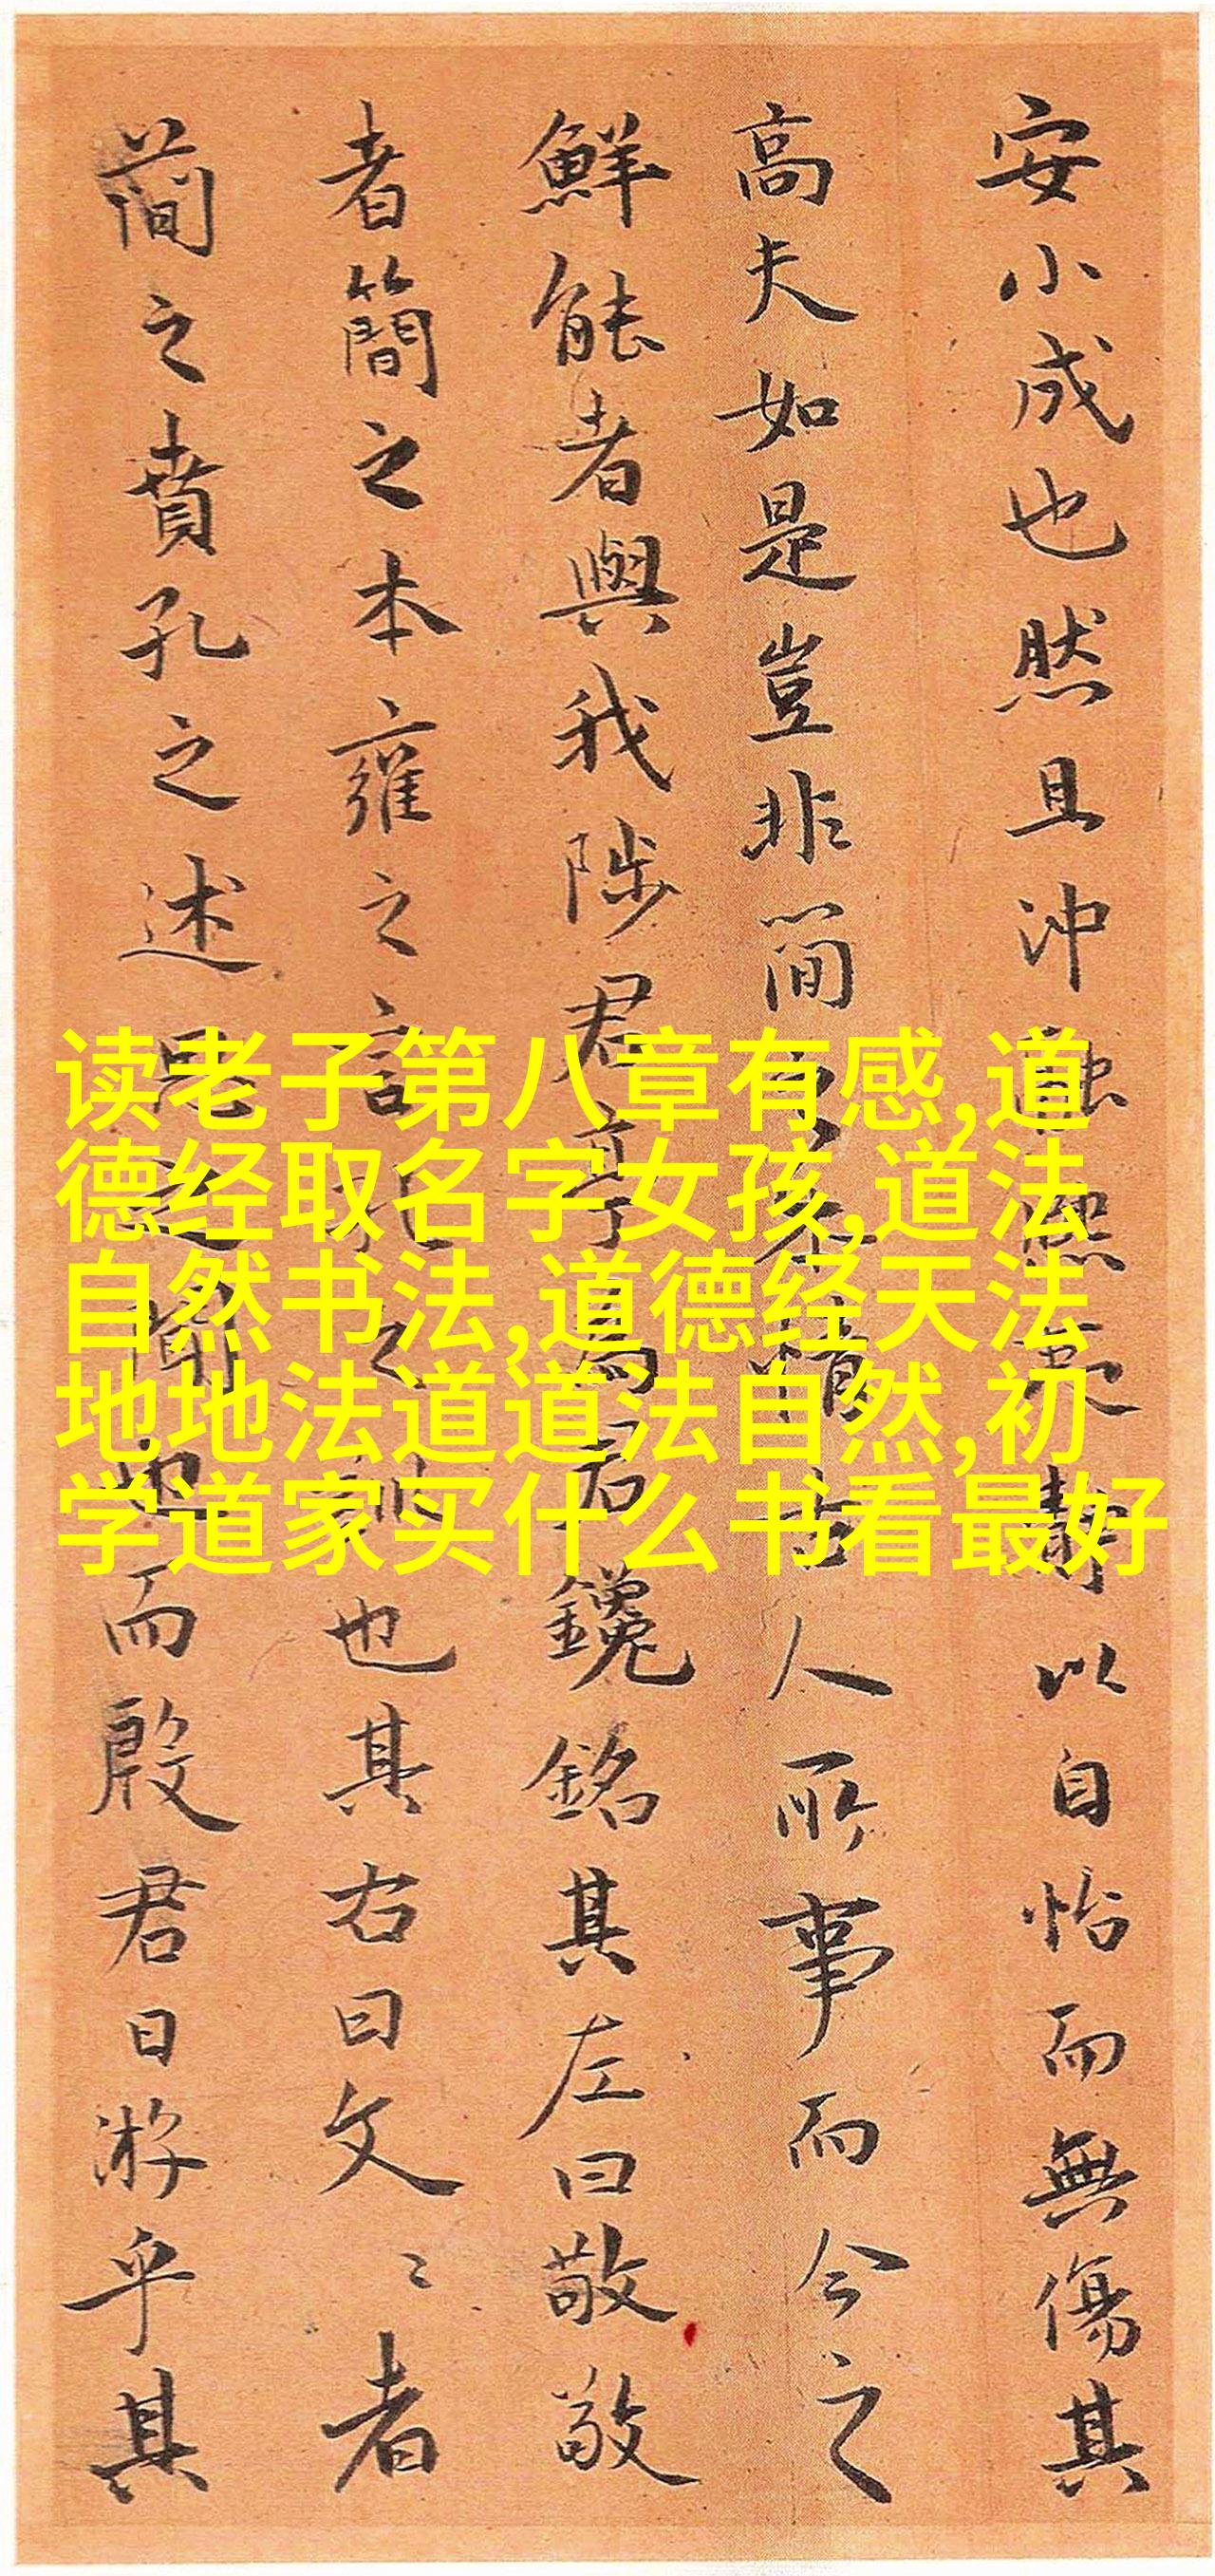 安小成也然且沖融熙夷靜以自怡而無傷其
高夫如是豈非簡之情古人所事而今之
鮮能者與我陟君亭為君鑱銘其左曰敬敬
者簡之本雍之言孔之也其右曰文〻者
簡之賁孔之述思之聞也而殷君日游乎其
读老子第八章有感,道
德经取名字女孩,道法
自然书法,道德经天法
地地法道道法自然,初
学道家买什么书看最好